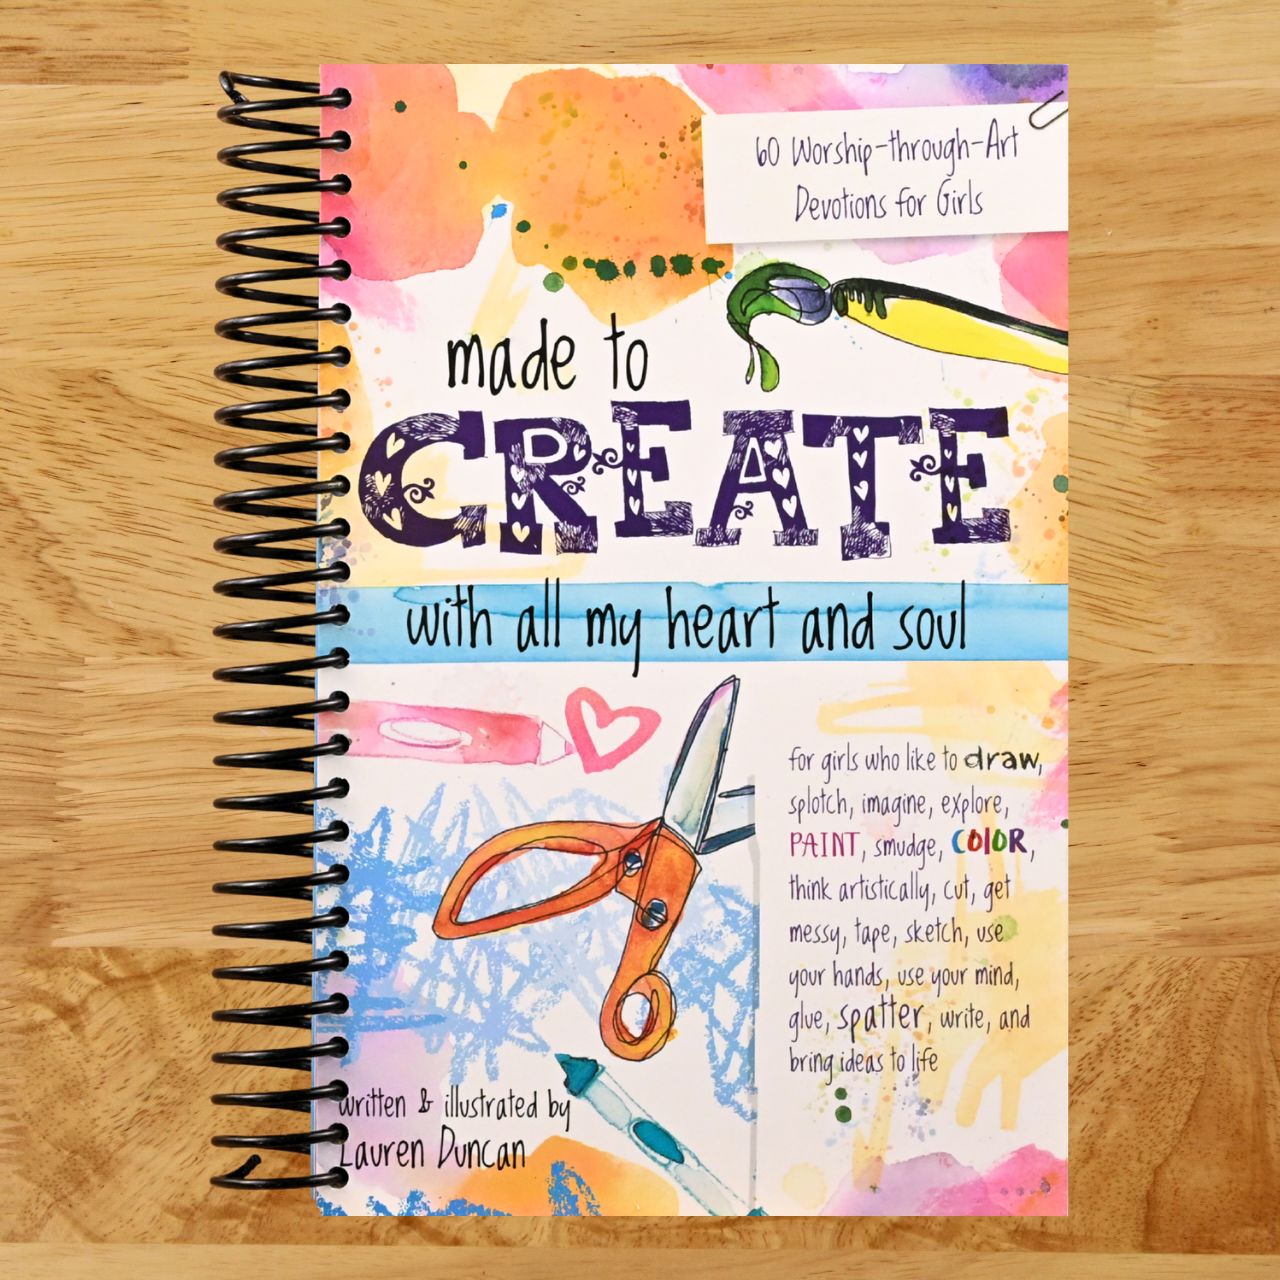 60 Worship-through-Art
Devotions for Girls
made to
CREATE
with all my heart and soul
for girls who like to draw,
splotch, imagine, explore,
PAINT, smudge, COlOR,
think artistically, cut, get
messy, tape, sketch, use
your hands, use your mind,
glue, spatter, write, and
bring ideas to life
written & illustrated by
Lauren Duncan